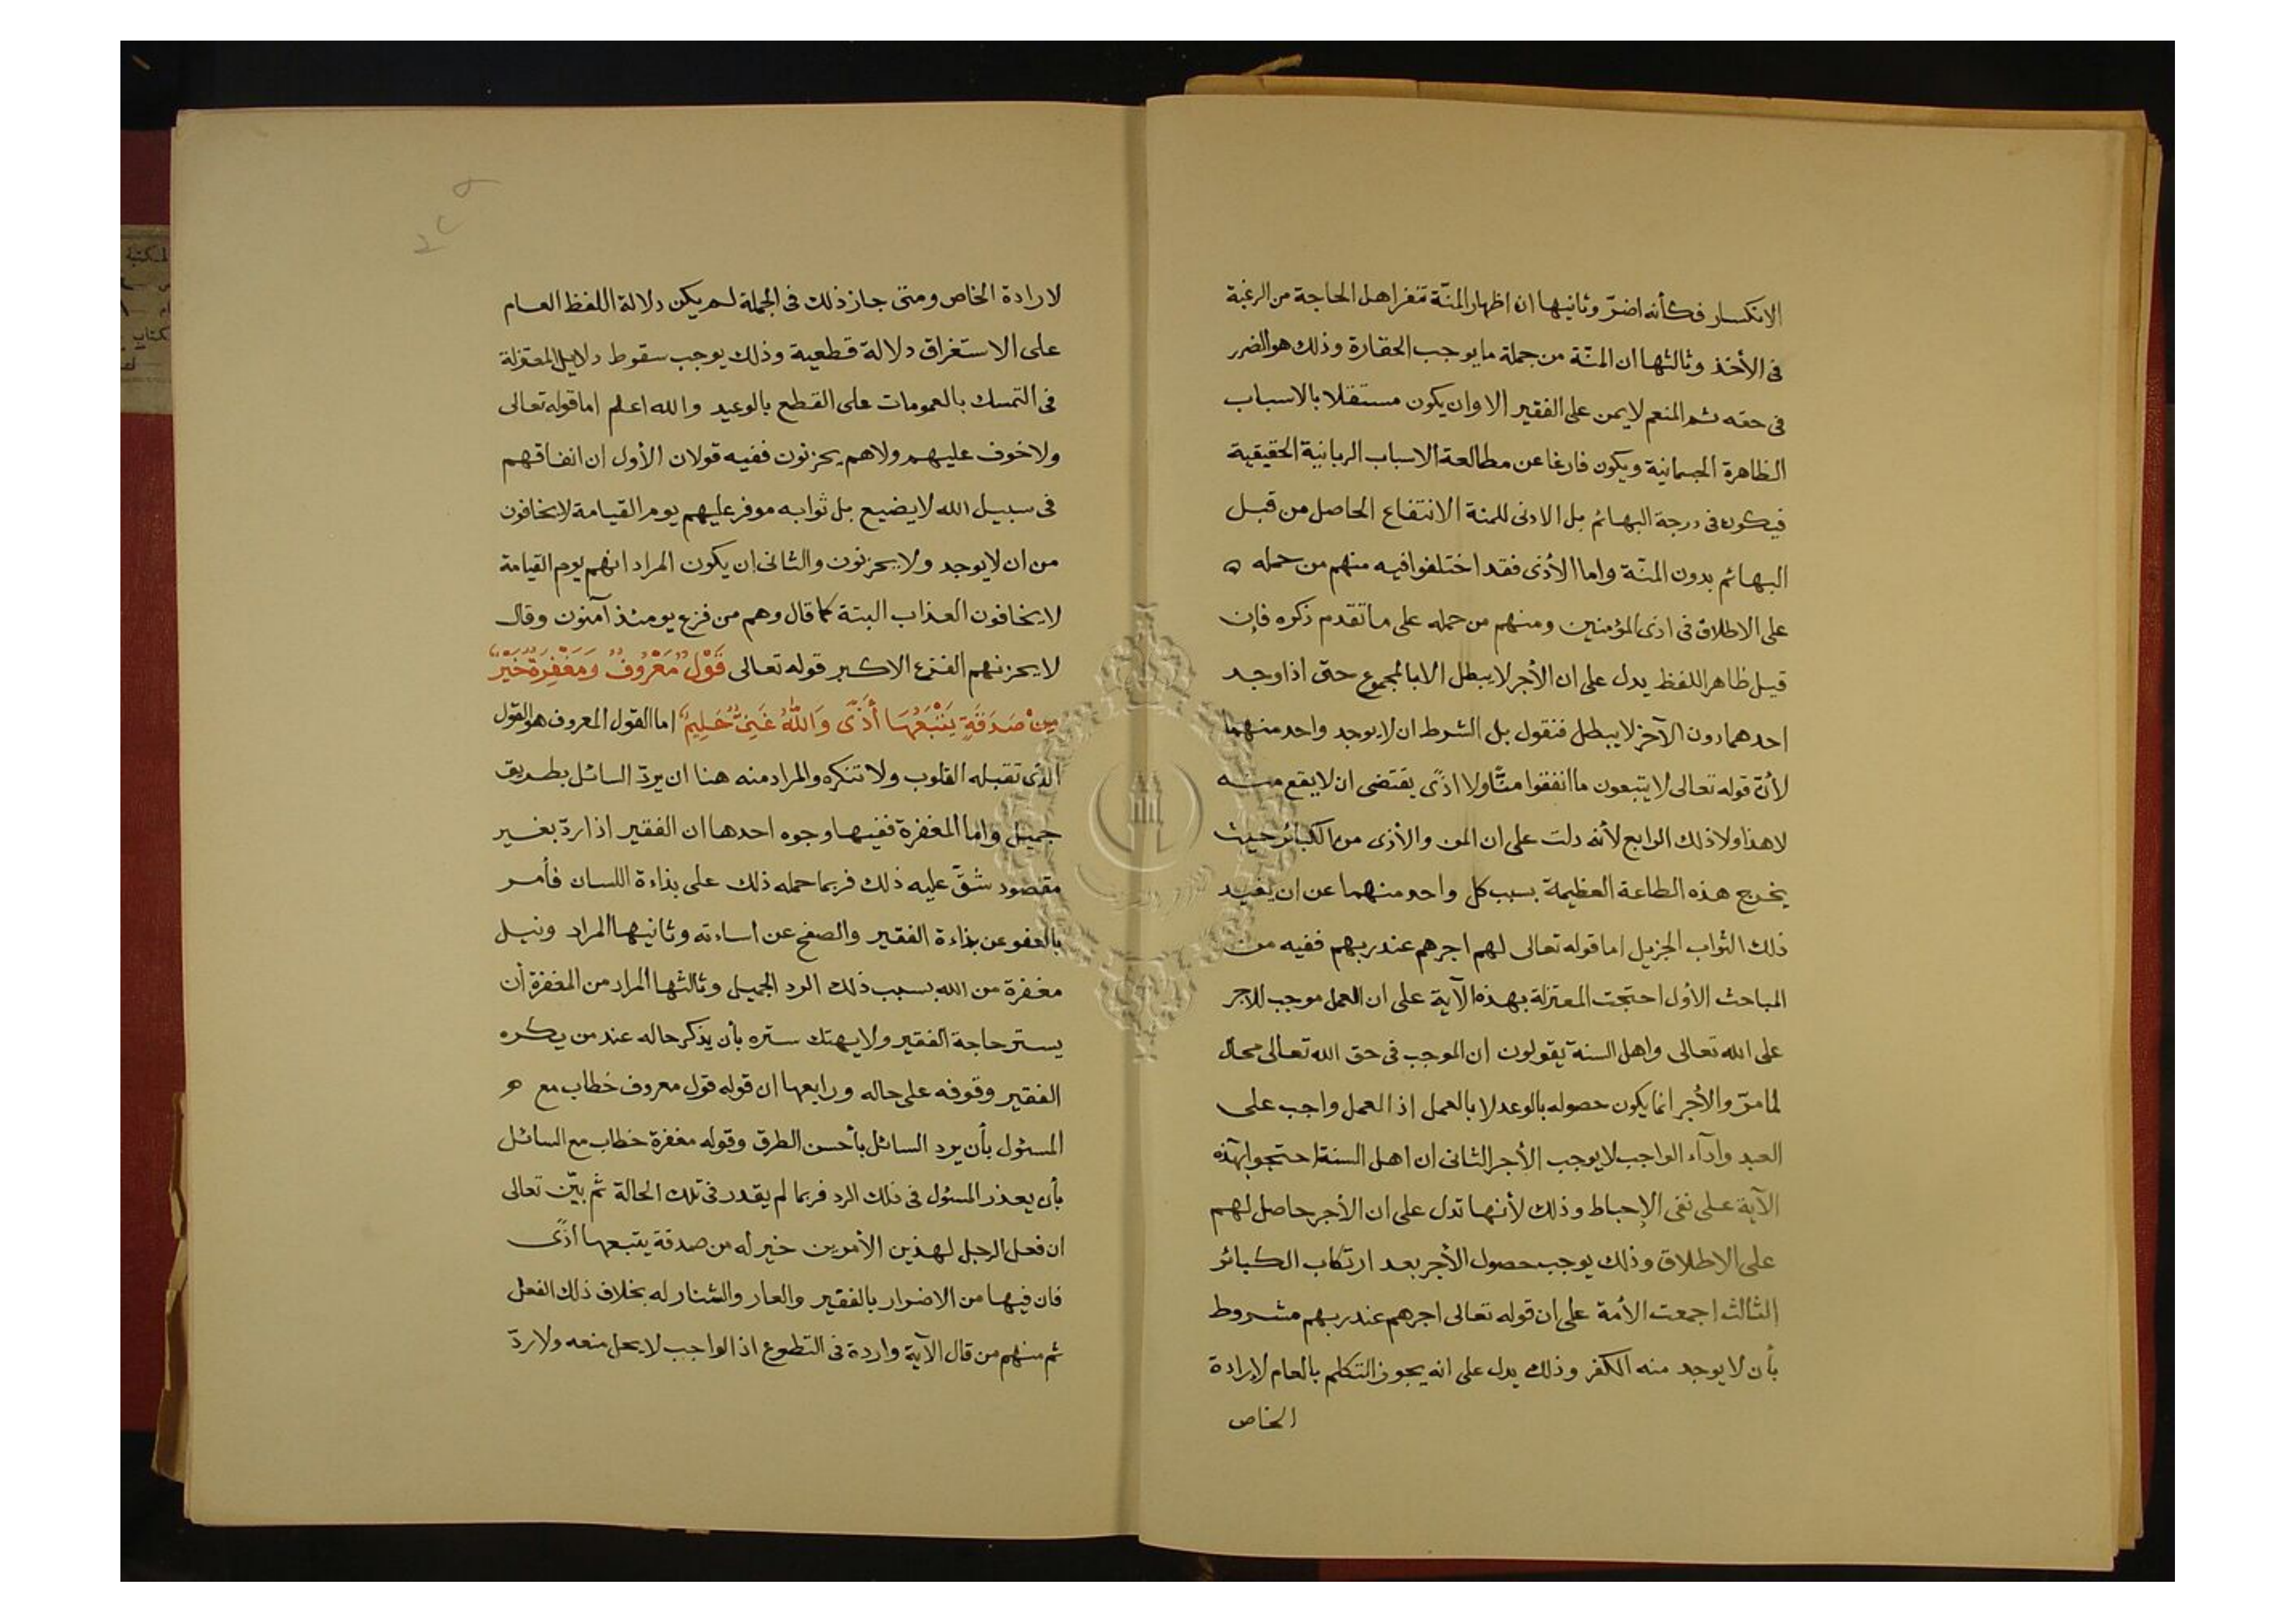 الانكسار فكأنه اضرّ وثانيها ان اظهار المنّة تنفر اهل الحاجة من الرغبة
فى الأخذ وثالثها ان المنّة من جملة ما يوجب الحقارة وذلك هو الضرر
فى حقه ثم المنعم لا يمن على الفقير الا وان يكون مستقلا بالاسباب
الظاهرة الجسمانية ويكون فارغا عن مطالعة الاسباب الربانية الحقيقية
فيكون فى درجة البهائم بل الادنى للمنة الانتفاع الحاصل من قبل
البهائم بدون المنّة واما الأذى فقد اختلفوا فيه منهم من حمله
على الاطلاق فى اذى المؤمنين ومنهم من حمله على ما تقدم ذكره فإن
قيل ظاهر اللفظ يدل على ان الأجر لا يبطل الا بالمجموع حتى اذا وجد
احدهما دون الآخر لا يبطل فنقول بل الشرط ان لا يوجد واحد منهما
لأنّ قوله تعالى لا يتبعون ما انفقوا منًّا ولا اذًى يقتضى ان لا يقع منه
لا هذا ولا ذلك الرابع لأنه دلت على ان المن والأذى من الكبائر حيث
يخرج هذه الطاعة العظيمة بسبب كل واحد منهما عن ان يفيد
ذلك الثواب الجزيل اما قوله تعالى لهم اجرهم عند ربهم ففيه من
المباحث الأول احتجت المعتزلة بهذه الآية على ان العمل موجب للاجر
على الله تعالى واهل السنة يقولون ان الموجب فى حق الله تعالى محال
لما مرّ والأجر انما يكون حصوله بالوعد لا بالعمل اذ العمل واجب على
العبد وادآء الواجب لا يوجب الأجر الثانى ان اهل السنة احتجوا بهذه
الآية على نفى الإحباط وذلك لأنها تدل على ان الأجر حاصل لهم
على الاطلاق وذلك يوجب حصول الأجر بعد ارتكاب الكبائر
الثالث اجمعت الأمة على ان قوله تعالى اجرهم عند ربهم مشروط
بأن لا يوجد منه الكفر وذلك يدل على انه يجوز التكلم بالعام لإرادة
الخاص
لارادة الخاص ومتى جاز ذلك فى الجملة لم يكن دلالة اللفظ العام
على الاستغراق دلالة قطعية وذلك يوجب سقوط دلايل المعتزلة
فى التمسك بالعمومات على القطع بالوعيد والله اعلم اما قوله تعالى
ولا خوف عليهم ولا هم يحزنون ففيه قولان الأول ان انفاقهم
فى سبيل الله لا يضيع بل ثوابه موفر عليهم يوم القيامة لا يخافون
من ان لا يوجد ولا يحزنون والثانى ان يكون المراد انهم يوم القيامة
لا يخافون العذاب البتة كما قال وهم من فزع يومئذ آمنون وقال
لا يحزنهم الفزع الاكبر قوله تعالى قَوْلٌ مَعْرُوفٌ وَمَغْفِرَةٌ خَيْرٌ
مِنْ صَدَقَةٍ يَتْبَعُهَا أَذًى وَاللّٰهُ غَنِىٌّ حَلِيمٌ اما القول المعروف هو القول
الذى تقبله القلوب ولا تنكره والمراد منه هنا ان يردّ السائل بطريق
جميل واما المغفرة ففيها وجوه احدها ان الفقير اذا ردّ بغير
مقصود شقّ عليه ذلك فربما حمله ذلك على بذاءة اللسان فأمر
بالعفو عن بذاءة الفقير والصفح عن اساءته وثانيها المراد ونيل
مغفرة من الله بسبب ذلك الرد الجميل وثالثها المراد من المغفرة أن
يستر حاجة الفقير ولا يهتك ستره بأن يذكر حاله عند من يكره
الفقير وقوفه على حاله ورابعها ان قوله قول معروف خطاب مع
المسئول بأن يرد السائل بأحسن الطرق وقوله مغفرة خطاب مع السائل
بأن يعذر المسئول فى ذلك الرد فربما لم يقدر فى تلك الحالة ثم بيّن تعالى
ان فعل الرجل لهذين الأمرين خير له من صدقة يتبعها اذًى
فان فيها من الاضرار بالفقير والعار والشنار له بخلاف ذلك الفعل
ثم منهم من قال الآية واردة فى التطوع اذ الواجب لا يحل منعه ولا ردّ